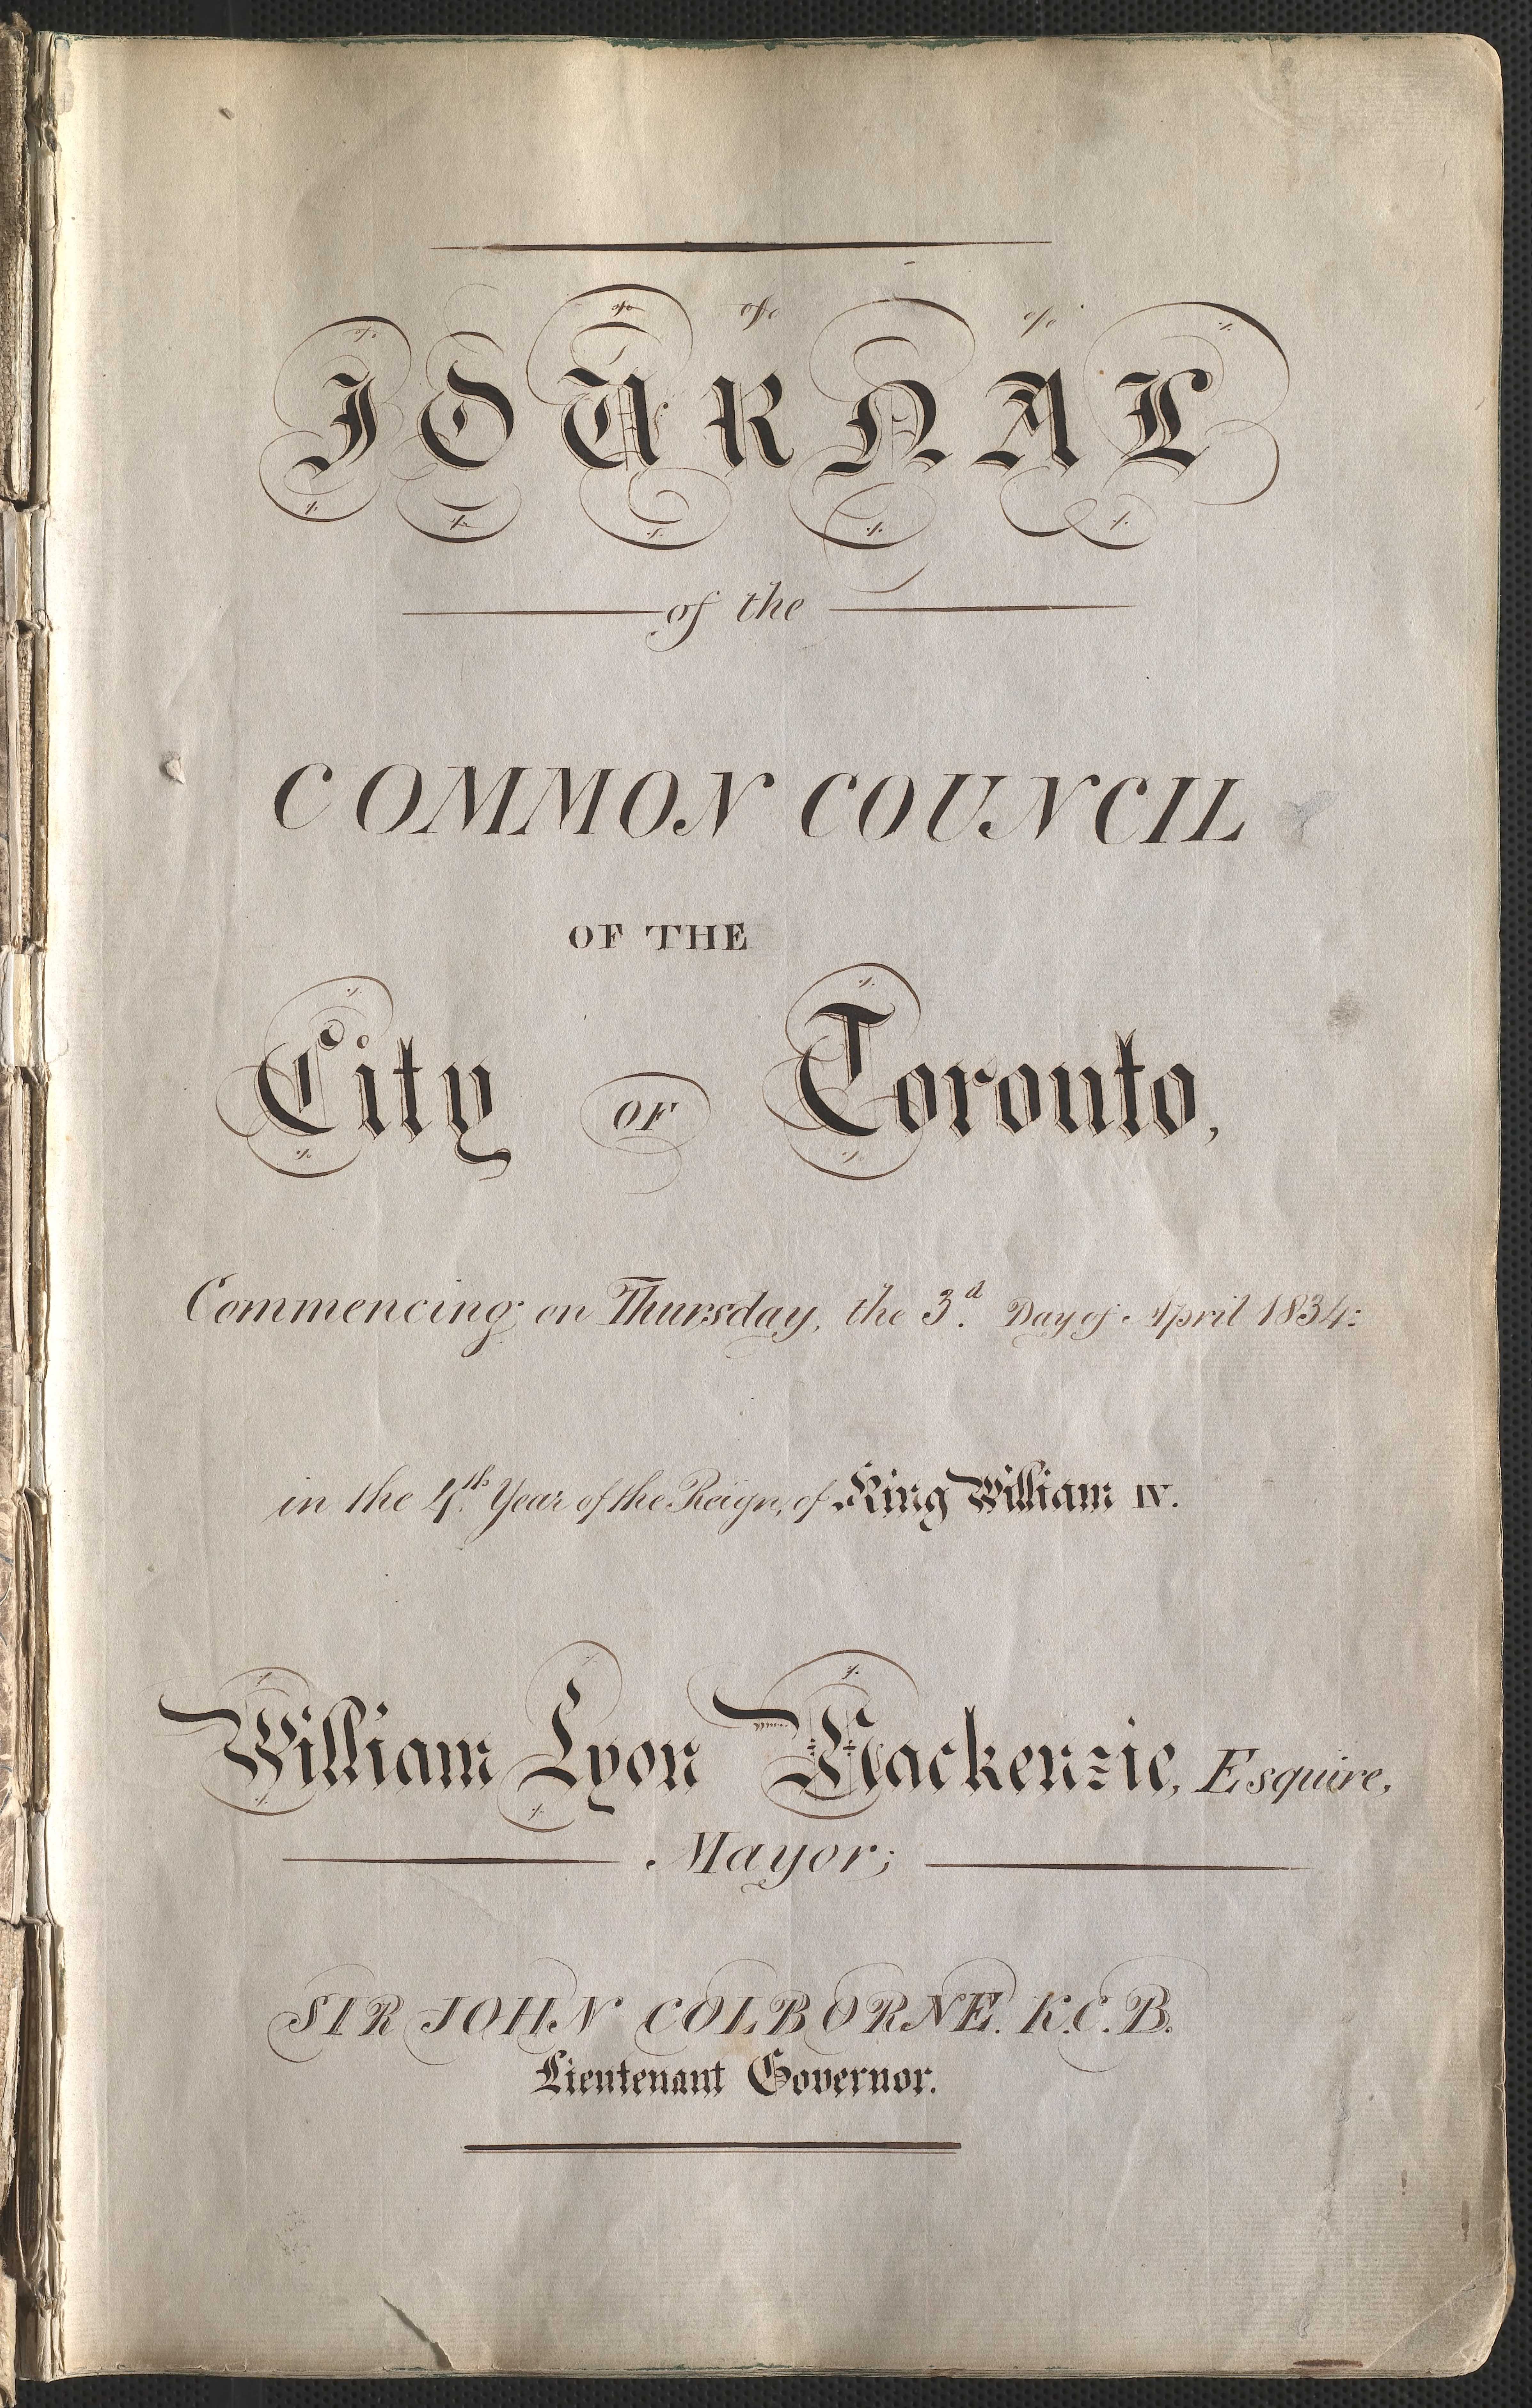 JOURNAL
of the
COMMON COUNCIL
OF THE
City OF Toronto,
Commencing on Thursday, the 3.d Day of April 1834:
in the 4.th Year of the Reign, of King William IV.
William Lyon Mackenzie, Esquire,
Mayor;
SIR JOHN COLBORNE. K.C.B.
Lieutenant Governor.